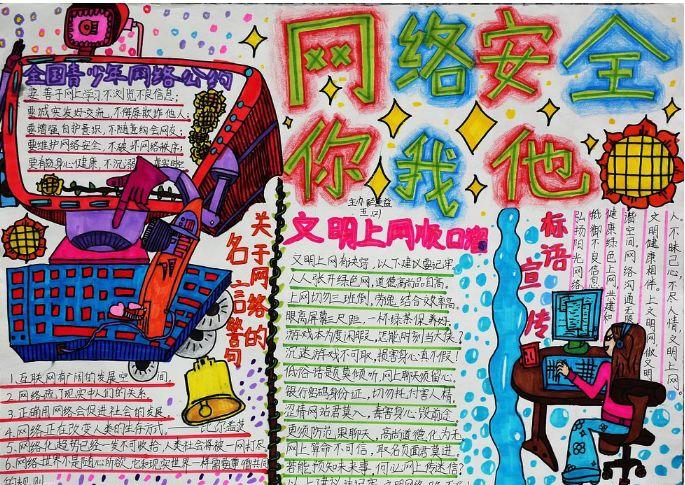 网络安全
你我他
全国青少年网络公约
要善于网上学习 不浏览不良信息；
要诚实友好交流，不侮辱欺诈他人；
要增强自护意识，不随意约会网友；
要维护网络安全，不破坏网络秩序；
要有益身心健康，不沉溺
关于网络的
名言警句
1.互联网有广阔的发展空间。
2.网络成了现实中人们的关系。
3.正确用网络会促进社会的发展
4.网络正在改变人类的生存方式，——比尔盖茨
5.网络化趋势已经一发不可收拾 人类社会将被一网打尽
6.网络世界不是随心所欲，它和现实世界一样需要
的规则
文明上网顺口溜
文明上网有决窍，以下建议要记牢。
人人张开绿色网，道德高尚品自高。
上网切勿三班倒，劳逸结合效率高。
眼离屏幕三尺距，一杯绿茶保养好。
游戏本为度闲暇，
沉迷游戏不可取，损害身心真不假！
低俗语言莫倾听，网上聊天须留心。
银行密码身份证，切勿托付害人精。
网站君莫入，毒害身心毁前途
更须防范黑聊天，高尚道德化为无
网上算命不可信，取名页面君莫进
若能预知未来事，何必网上传迷信！
标语宣传
人不昧己心，不尽人情，文明上网。
文明健康相伴。上文明网，做文明
潜空间，网络沟通无限
健康绿色上网，共建和
抵制不良信息
弘扬阳光网络